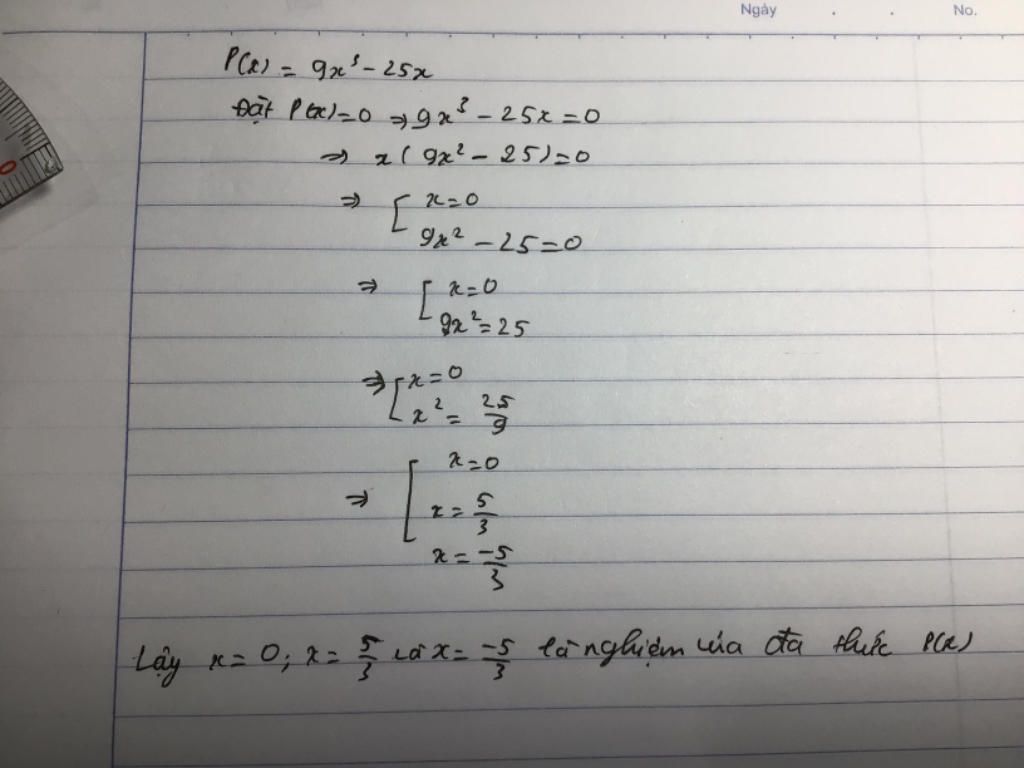 Ngày . . No.
P(x) = 9x³ - 25x
Đặt P(x) = 0 ⇒ 9x³ - 25x = 0
⇒ x(9x² - 25) = 0
⇒ [ x = 0
9x² - 25 = 0
⇒ [ x = 0
9x² = 25
⇒ [ x = 0
x² = 25/9
⇒ [ x = 0
x = 5/3
x = -5/3
Lậy x = 0; x = 5/3 và x = -5/3 là nghiệm của đa thức P(x)
0